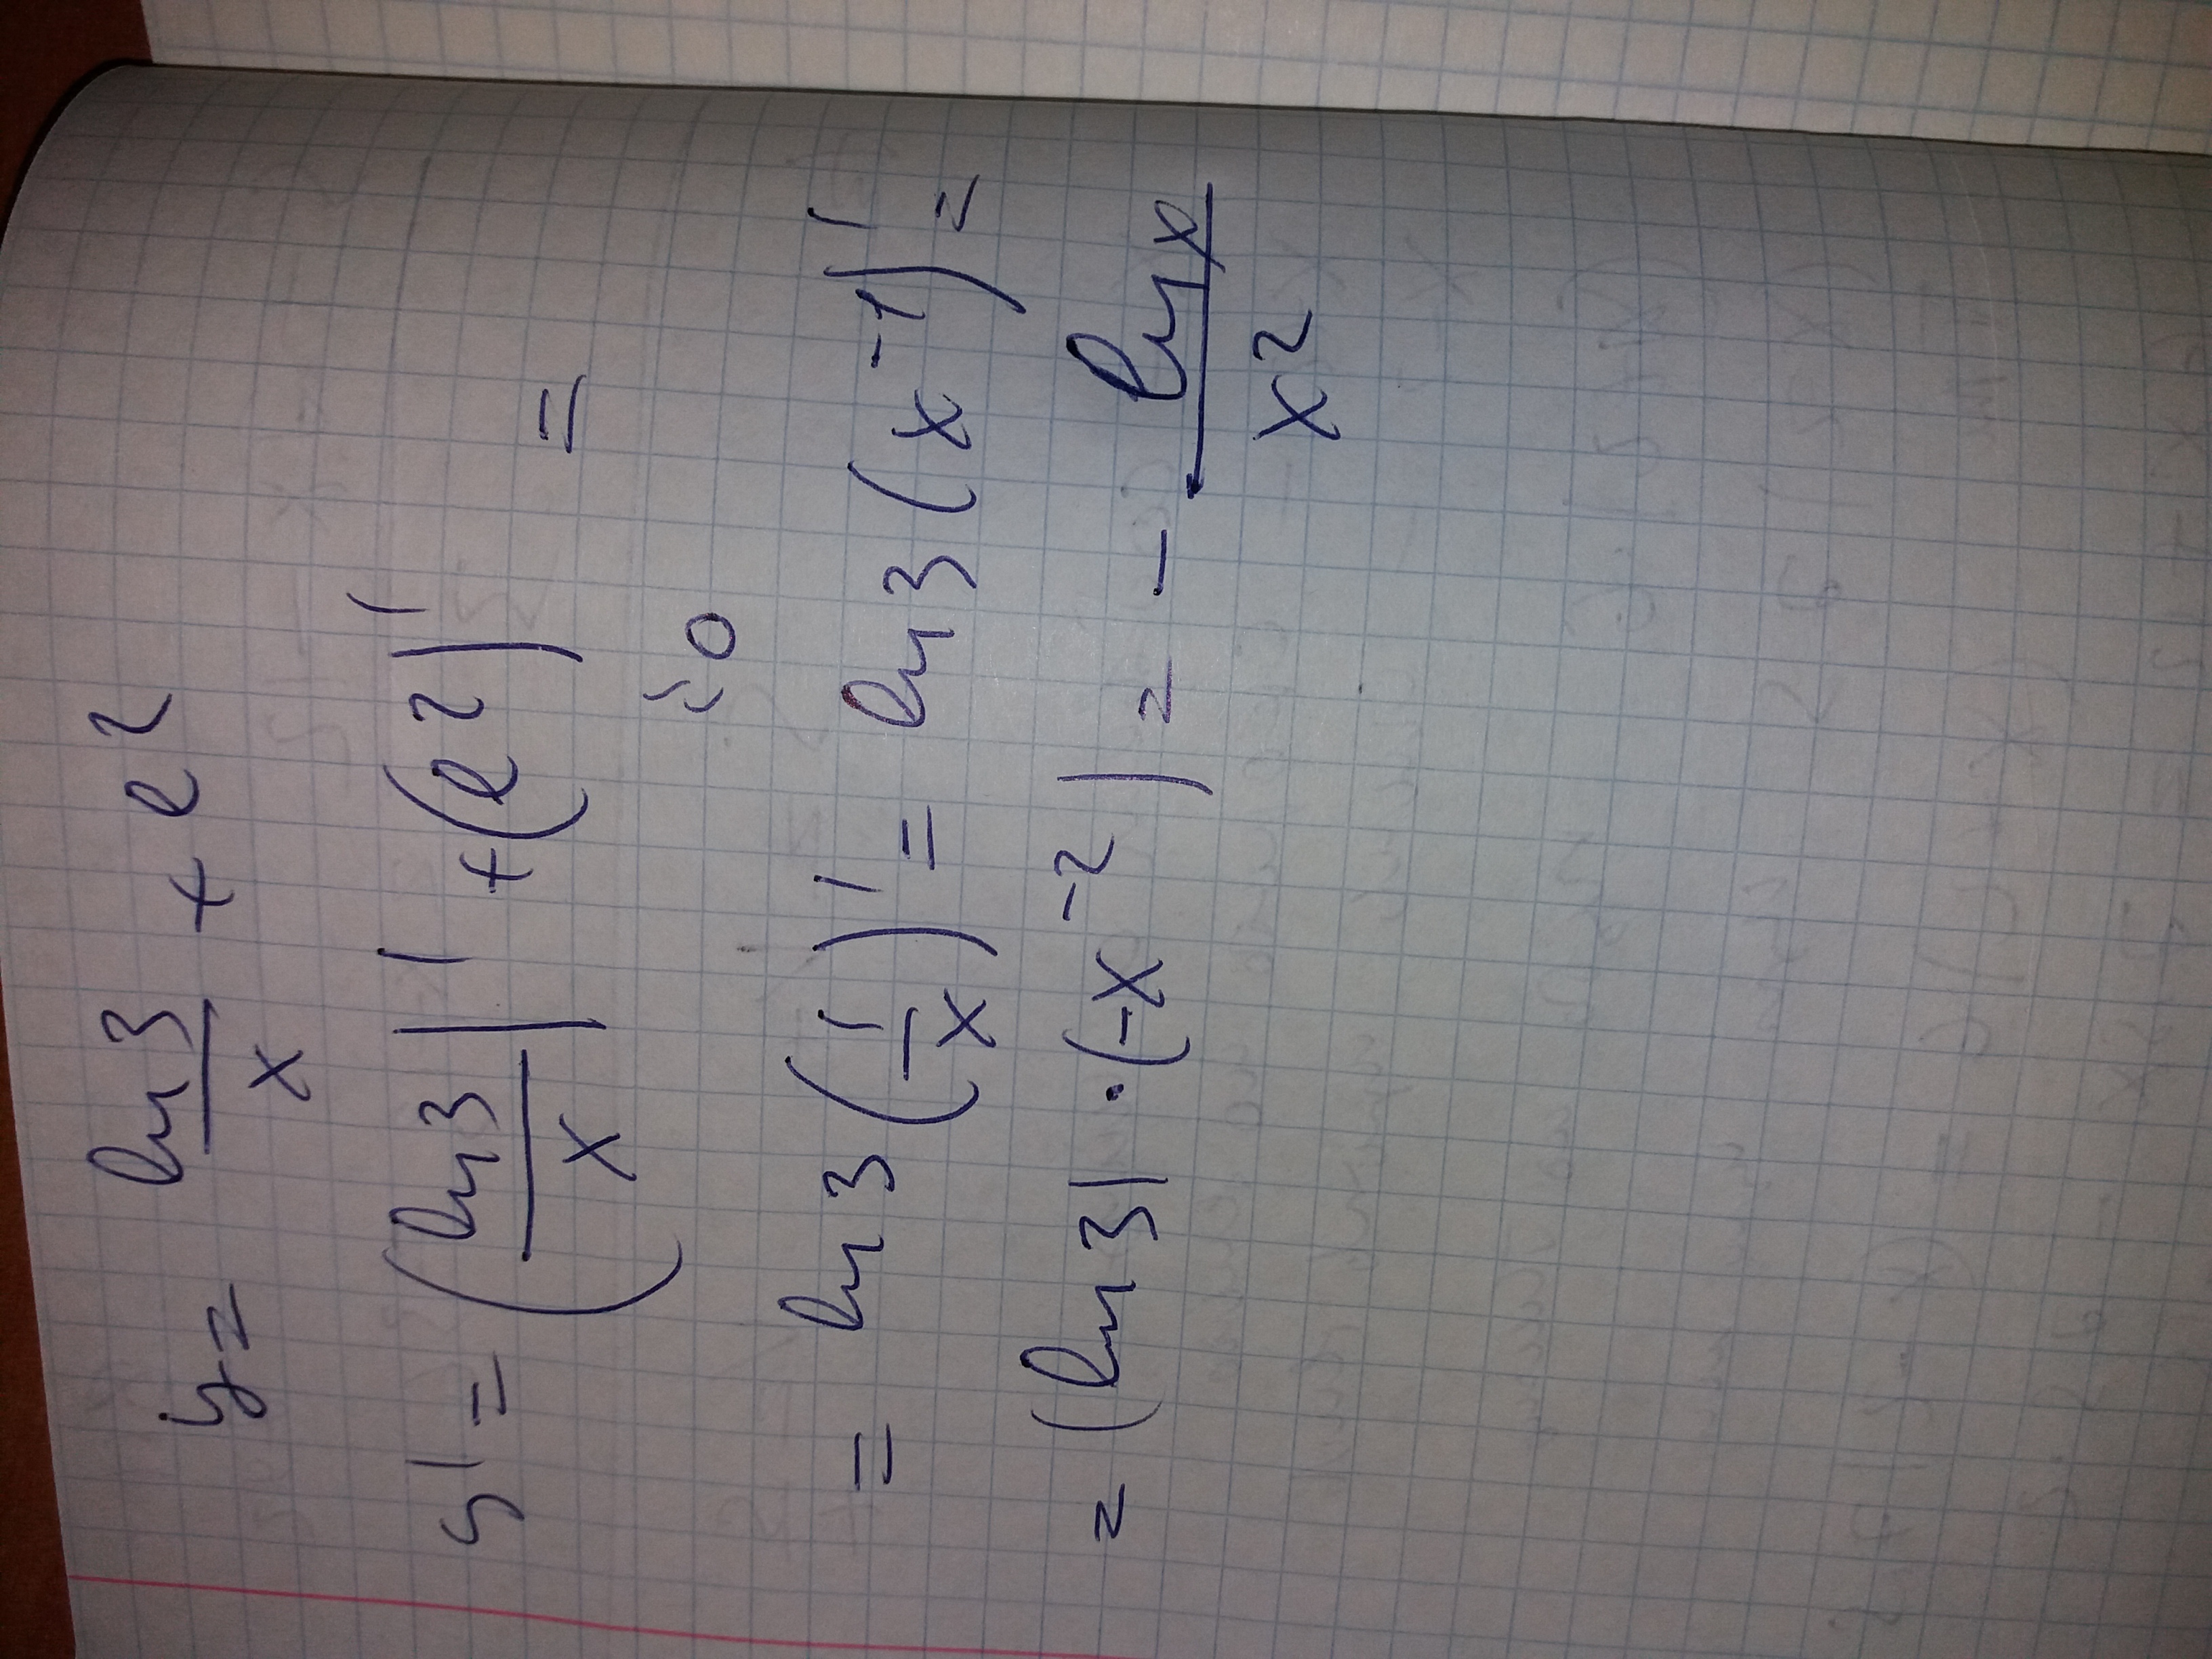 y = ln3/x + e^2
y' = (ln3/x)' + (e^2)' =
= 0
= ln3 (1/x)' = ln3 (x^-1)' =
= (ln3) · (-x^-2) = - lnx/x^2